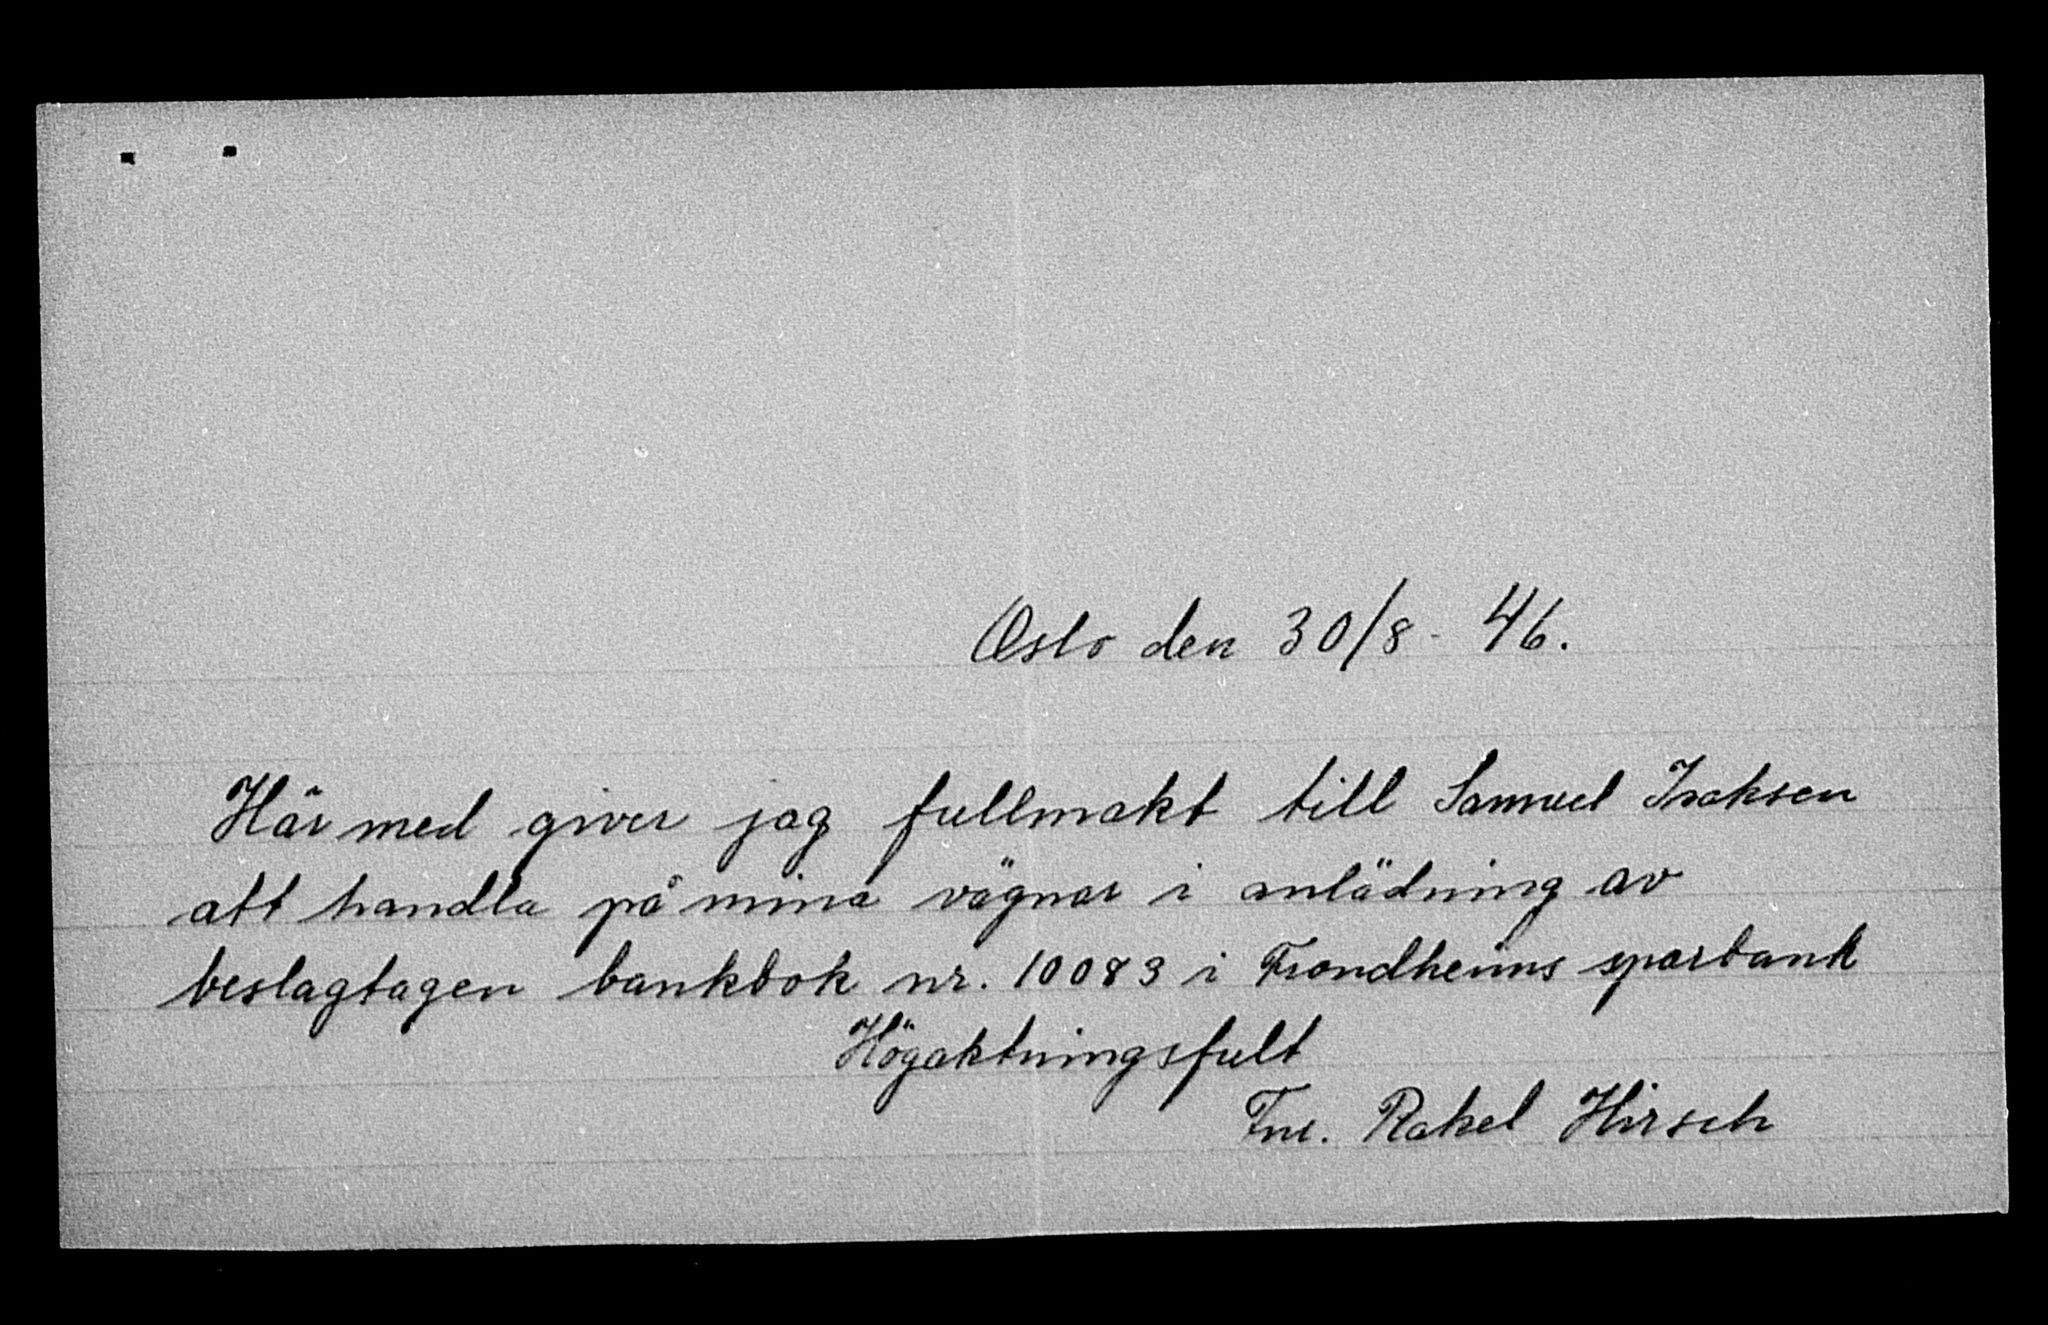 Oslo den 30/8 - 46.
Här med giver jag fullmakt till Samuel Isaksen
att handla på mina vägnar i anlädning av
beslagtagen bankbok nr. 10083 i Trondheims sparbank
Högaktningsfult
Rakel Hirsch